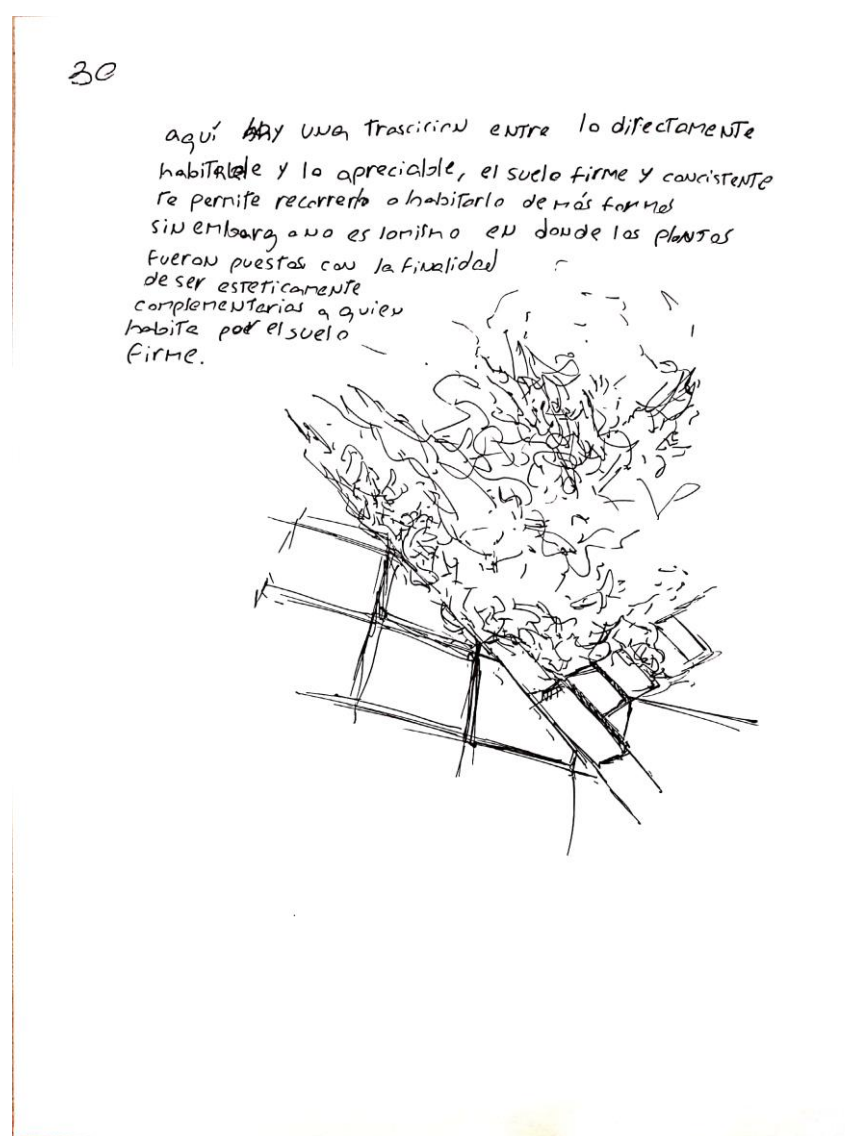 30
aquí hay una trascicion entre lo directamente
habitable y lo apreciable, el suelo firme y concistente
te permite recorrerlo o habitarlo de más formas
sin embargo no es lo mismo en donde las plantas
fueron puestas con la finalidad
de ser esteticamente
complementarias a quien
habita por el suelo
firme.